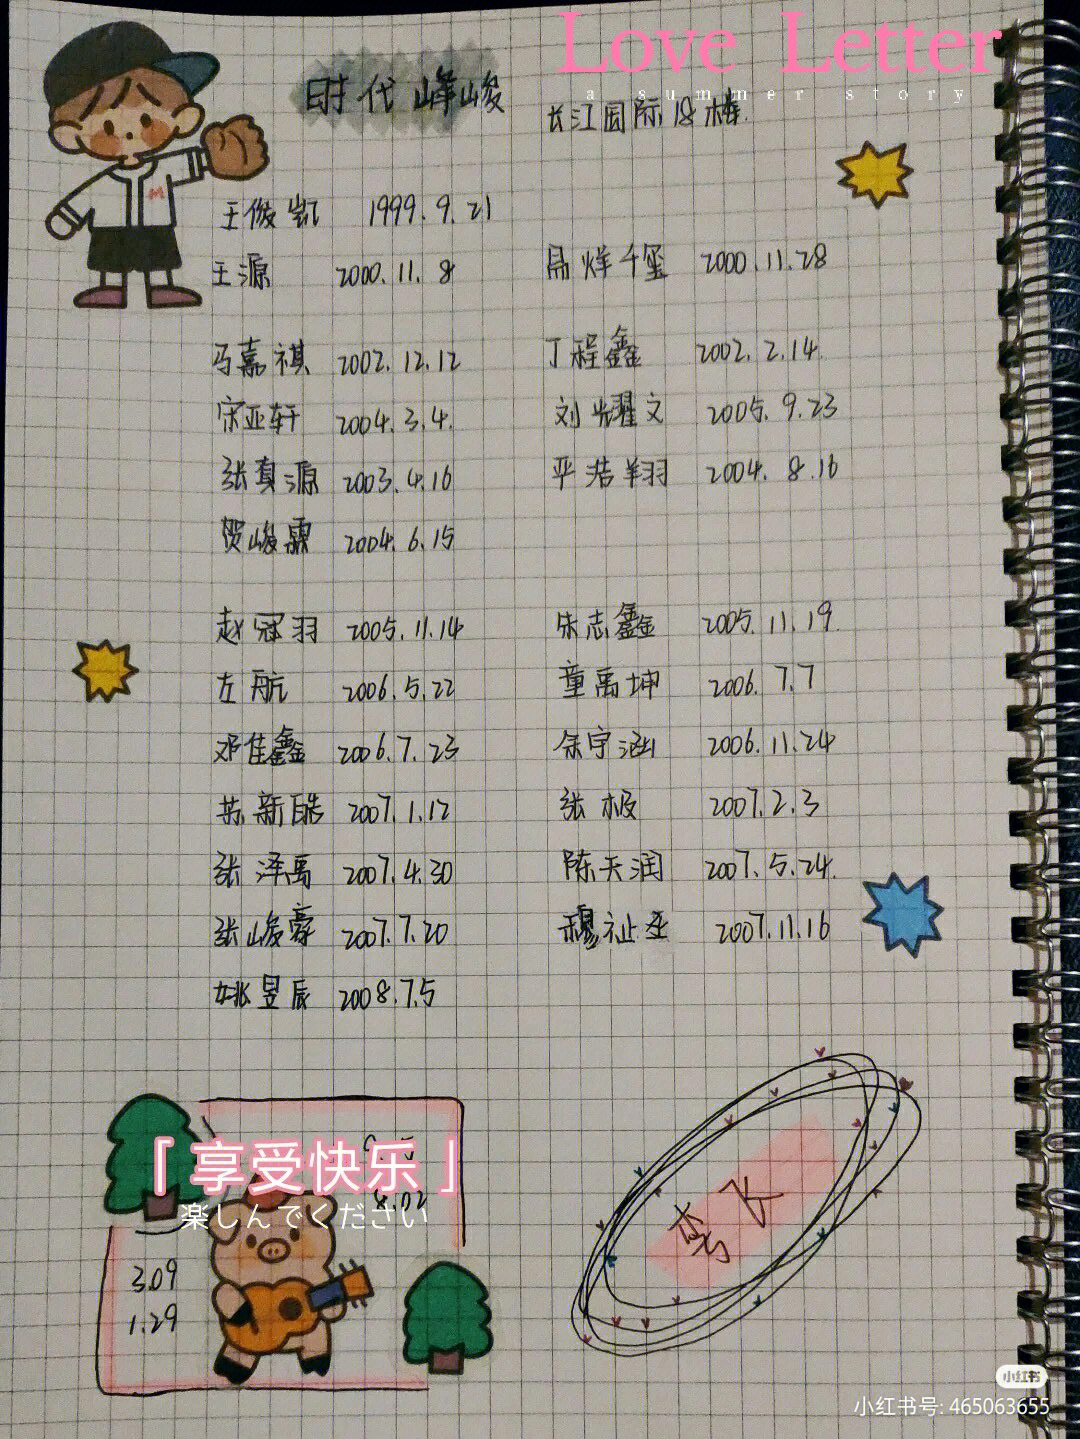 Love Letter
a summer story
时代峰峻
长江国际18楼.
王俊凯 1999.9.21
王源 2000.11.8 易烊千玺 2000.11.28
马嘉祺 2002.12.12 丁程鑫 2002.2.14
宋亚轩 2004.3.4. 刘耀文 2005.9.23
张真源 2003.4.16 严浩翔 2004.8.16
贺峻霖 2004.6.15
赵冠羽 2005.11.14 朱志鑫 2005.11.19.
左航 2006.5.22 童禹坤 2006.7.7
邓佳鑫 2006.7.23 余宇涵 2006.11.24
苏新皓 2007.1.12 张极 2007.2.3
张泽禹 2007.4.30 陈天润 2007.5.24.
张峻豪 2007.7.20 穆祉丞 2007.11.16
姚昱辰 2008.7.5
「享受快乐」
楽しんでください
8.02
3.09
1.29
M
小红书
小红书号: 465063655